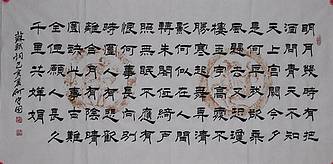 明月幾時有把
酒問青天不知
天上宮闕今夕
是何年我欲乘
風歸去又恐瓊
樓玉宇高處不
勝寒起舞弄清
影何似在人間
轉朱閣低綺戶
照無眠不應有
恨何事長向別
時圓人有悲歡
離合月有陰晴
圓缺此事古難
全但願人長久
千里共嬋娟
蘇軾詞己亥夏